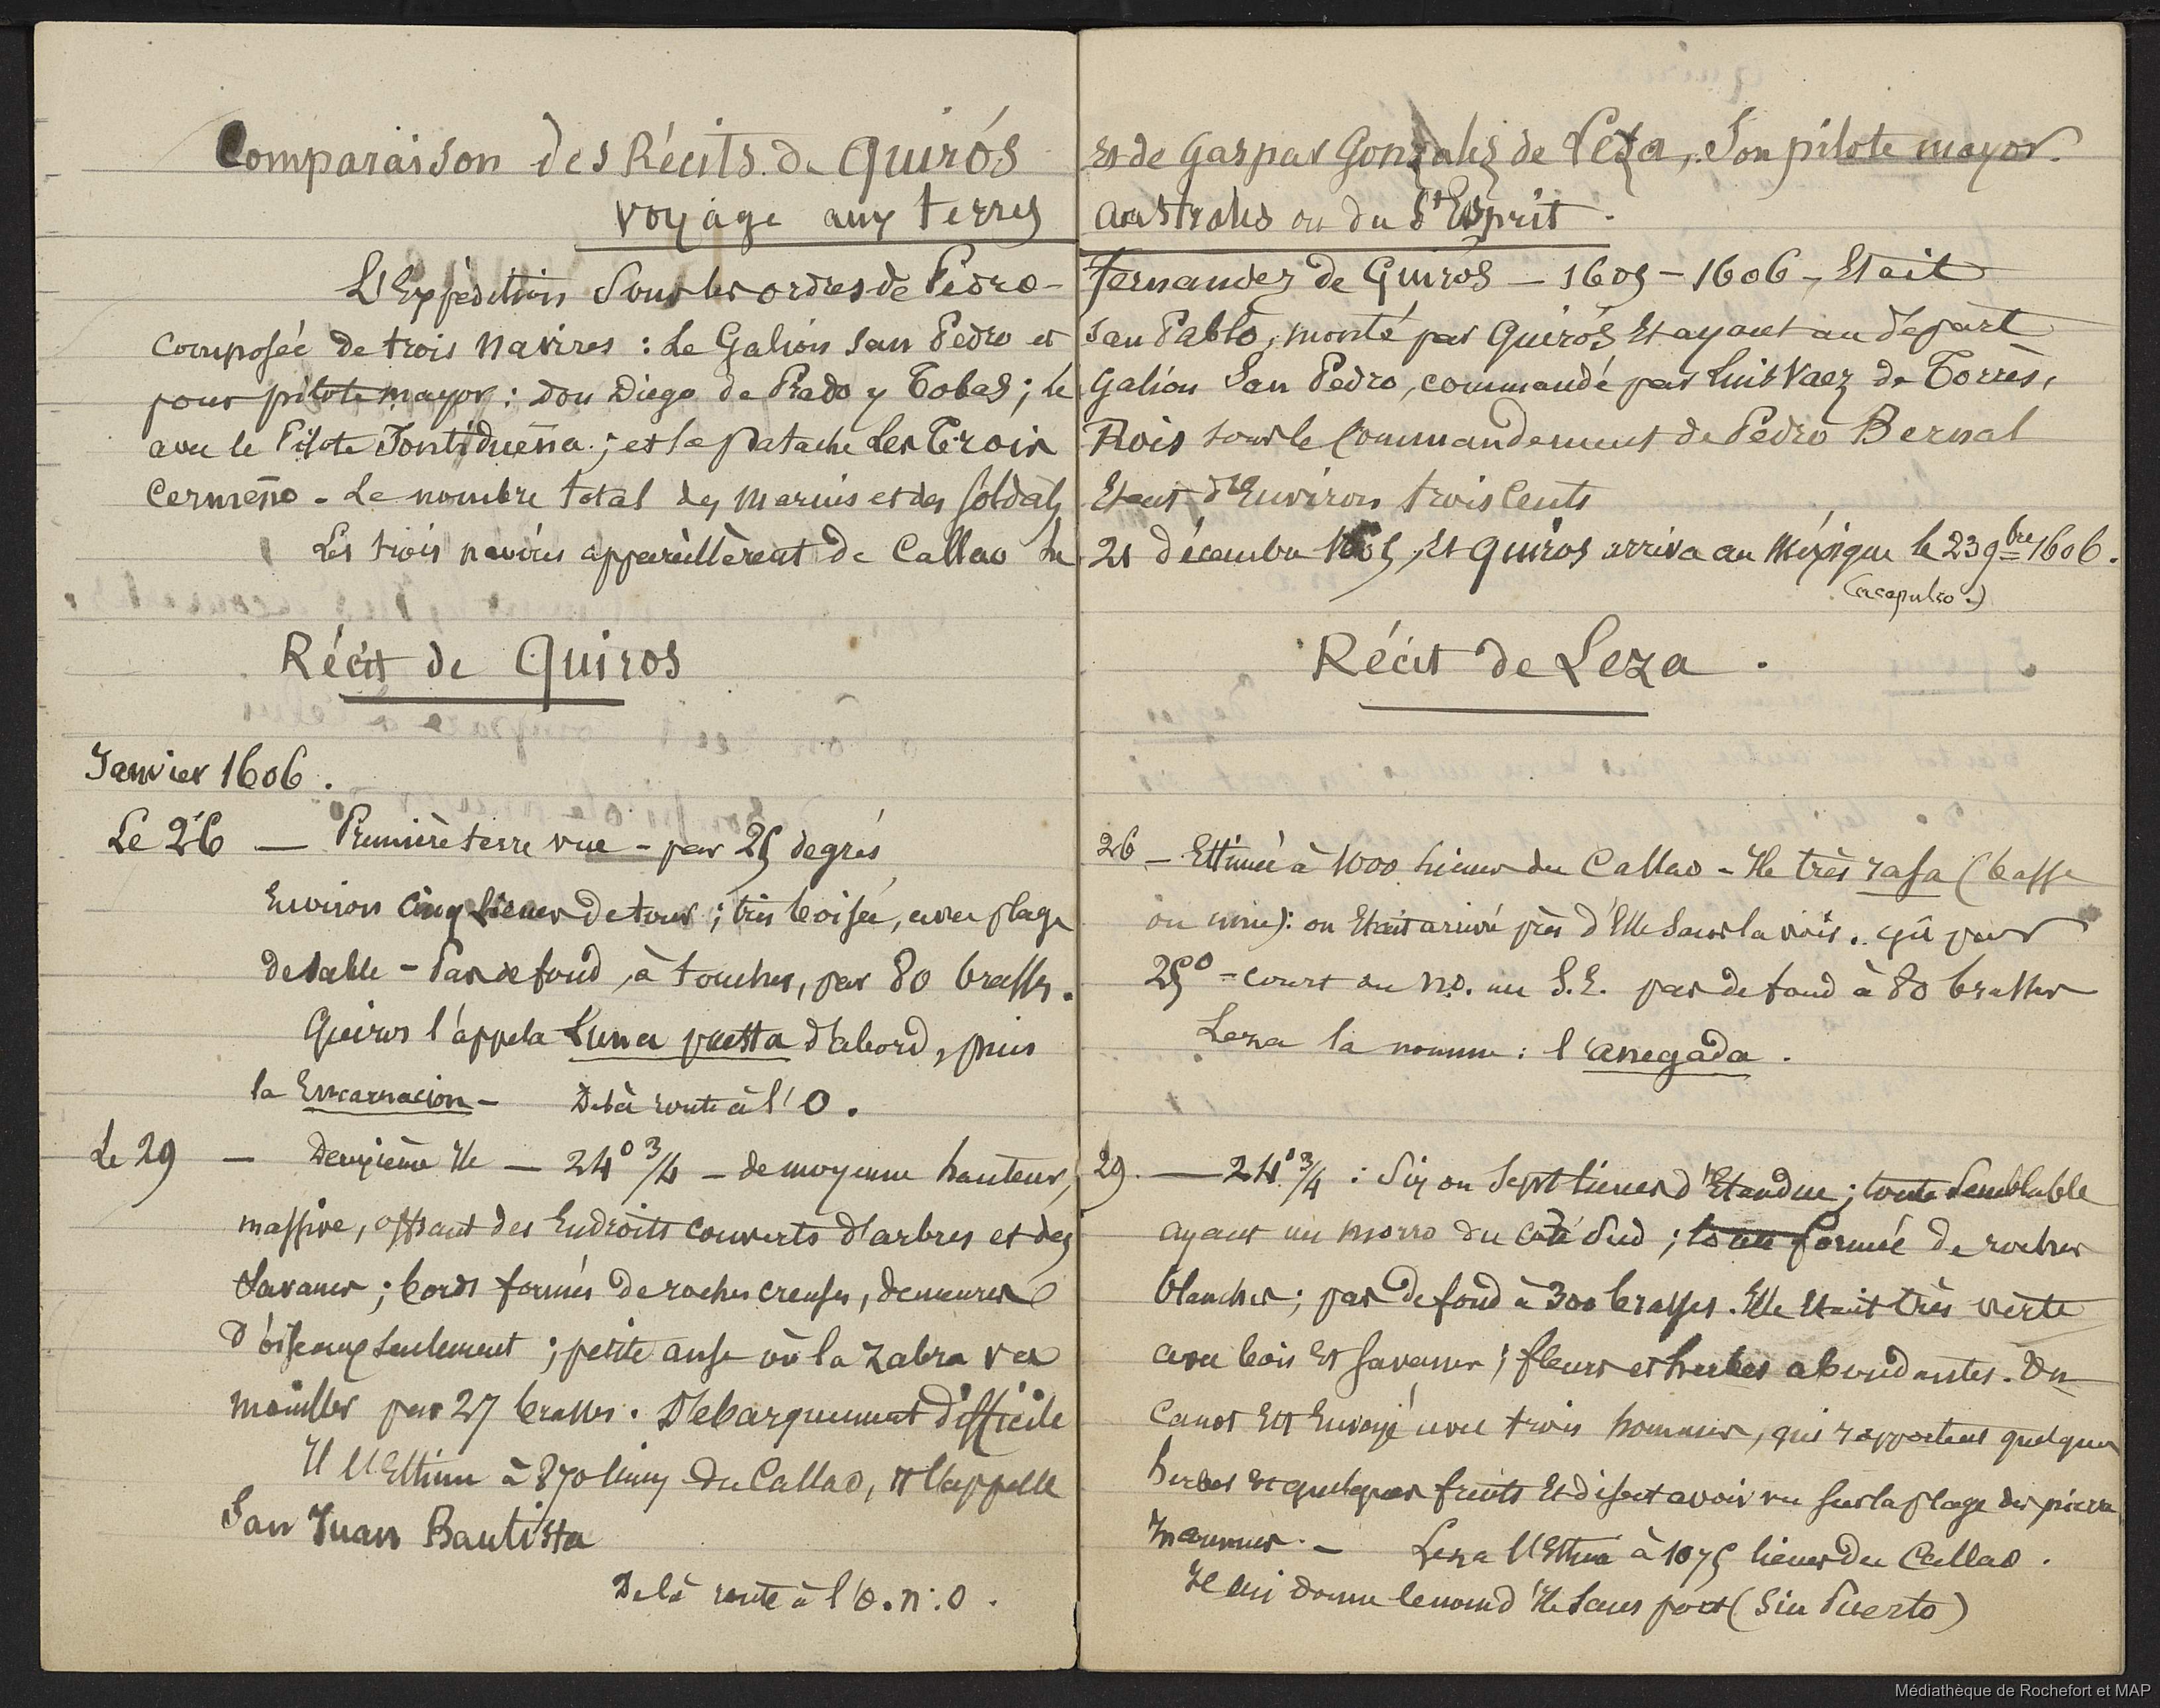 Comparaison des Récits de Quirós et de Gaspar Gonzalez de Leza, son pilote mayor.
voyage aux terres australes ou du St Esprit.
L'Expédition sous les ordres de Pedro- Fernandez de Quirós — 1605 - 1606 - Etait
composée de trois navires : Le Galion San Pedro et San Pablo, monté par Quirós et ayant au départ
pour pilote mayor : Don Diego de Prado y Tobal ; le Galion San Pedro, commandé par Luis Vaez de Torrès,
avec le Pilote Fontidueña ; et la patache Les Trois Rois sous le Commandement de Pedro Bernal
Cermeño - Le nombre total des marins et des soldats Etant d'Environ trois Cents
Les trois navires appareillèrent de Callao le 21 décembre 1605, et Quiros arriva au Méxique le 23 9bre 1606.
(acapulco.)
Récit de Quiros
Janvier 1606.
Le 26 — Première terre vue - par 25 degrés
Environ cinq lieues de tour ; très boisée, avec plage
de sable - Pas de fond, à toucher, par 80 brasses.
Quiros l'appela Luna puesta d'abord, puis
la Encarnacion - De là route à l'O.
Le 29 — Deuxième Ile — 24° 3/4 - de moyenne hauteur,
massive, offrant des Endroits couverts d'arbres et des
savanes ; bords formés de roches creuses, demeures
d'oiseaux seulement ; petite anse où la zabra va
mouiller par 27 brasses. Débarquement difficile
Il l'Estime à 870 lieues du Callao, et l'appelle
San Juan Bautista
De là route à l'O.n.O.
Récit de Leza.
26 - Estimée à 1000 lieues du Callao - Ile très rasa (basse
ou unie) : on Etait arrivé près d'Elle sans la voir. gît par
25° - court au n.o. au S.E. pas de fond à 80 brasses
Leza la nomme : l'anegada.
29. — 24° 3/4 : Six ou Sept lieues d'Etendue ; toute semblable
ayant un morro du côté Sud ; toute formée de roches
blanches ; pas de fond à 300 brasses. Elle Etait très verte
avec bois et savanes ; fleurs et herbes abondantes. Un
Canot Est Envoyé avec trois hommes, qui rapportent quelques
herbes et quelques fruits et disent avoir vu sur la plage des pierres
Leza l'Estime à 1075 lieues du Callao.
Il lui donne le nom d'Ile sans port (Sin Puerto)
Médiathèque de Rochefort et MAP